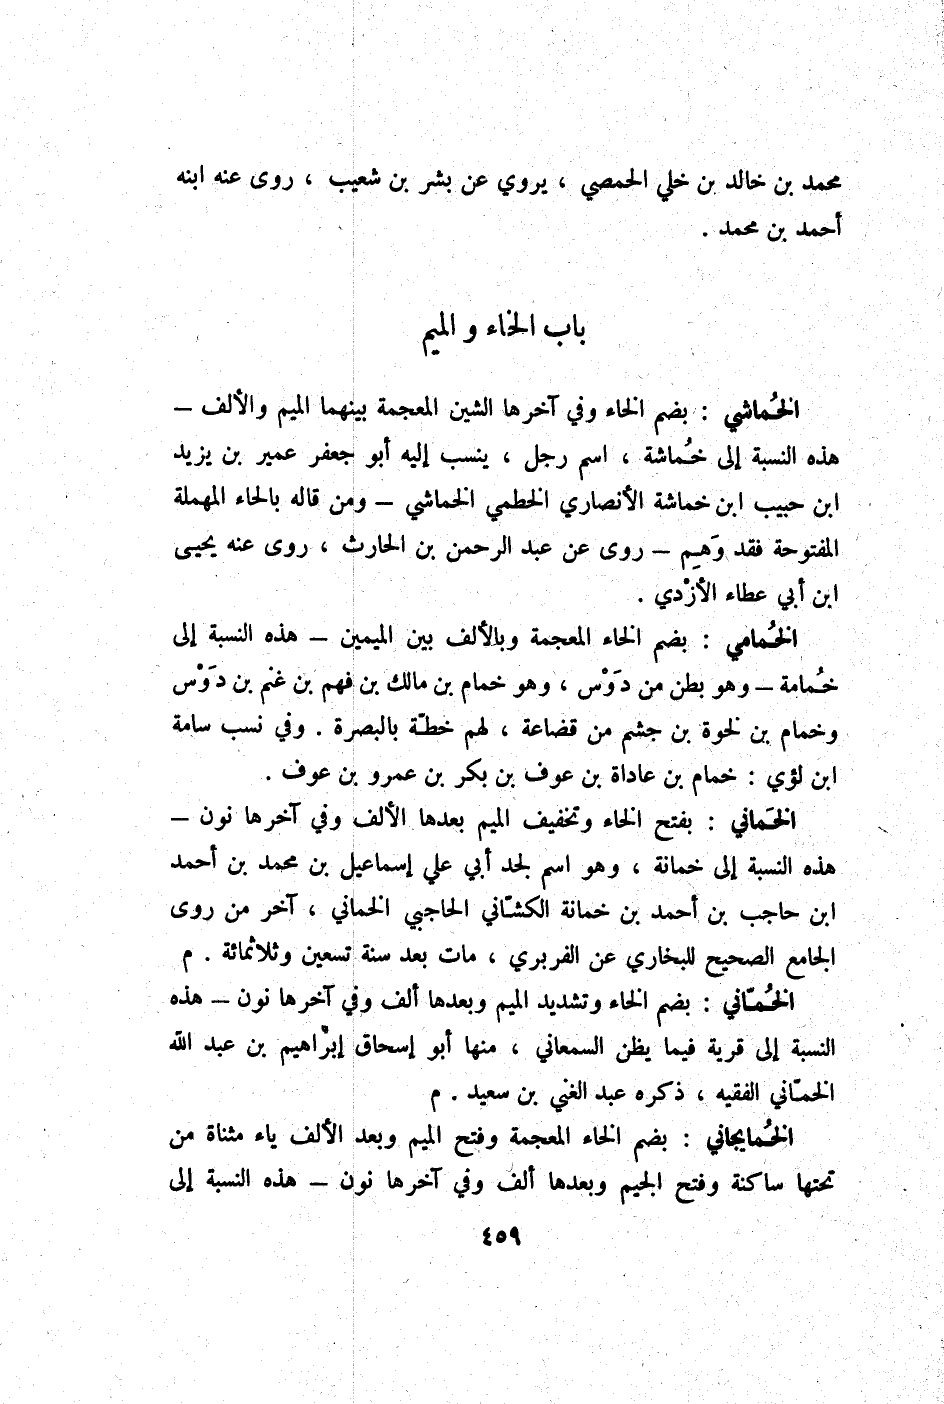 محمد بن خالد بن خلي الحمصي ، يروي عن بشر بن شعيب ، روى عنه ابنه
أحمد بن محمد .
باب الخاء و الميم
الخُماشي : بضم الخاء وفي آخرها الشين المعجمة بينهما الميم والألف –
هذه النسبة إلى خُماشة ، اسم رجل ، ينسب إليه أبو جعفر عمير بن يزيد
ابن حبيب ابن خماشة الأنصاري الخطمي الخماشي – ومن قاله بالحاء المهملة
المفتوحة فقد وَهِم – روى عن عبد الرحمن بن الحارث ، روى عنه يحيى
ابن أبي عطاء الأزْدي .
الخُمامي : بضم الخاء المعجمة وبالألف بين الميمين – هذه النسبة إلى
خُمامة – وهو بطن من دَوْس ، وهو خمام بن مالك بن فهم بن غنم بن دَوْس
وخمام بن لخوة بن جشم من قضاعة ، لهم خطّة بالبصرة . وفي نسب سامة
ابن لؤي : خمام بن عاداة بن عوف بن بكر بن عمرو بن عوف .
الخَماني : بفتح الخاء وتخفيف الميم بعدها الألف وفي آخرها نون –
هذه النسبة إلى خمانة ، وهو اسم لجد أبي علي إسماعيل بن محمد بن أحمد
ابن حاجب بن أحمد بن خمانة الكشّاني الحاجبي الخماني ، آخر من روى
الجامع الصحيح للبخاري عن الفربري ، مات بعد سنة تسعين وثلاثمائة . م
الخُمّاني : بضم الخاء وتشديد الميم وبعدها ألف وفي آخرها نون – هذه
النسبة إلى قرية فيما يظن السمعاني ، منها أبو إسحاق إبْراهيم بن عبد الله
الخمّاني الفقيه ، ذكره عبد الغني بن سعيد . م
الخُمايجاني : بضم الخاء المعجمة وفتح الميم وبعد الألف ياء مثناة من
تحتها ساكنة وفتح الجيم وبعدها ألف وفي آخرها نون – هذه النسبة إلى
٤٥٩